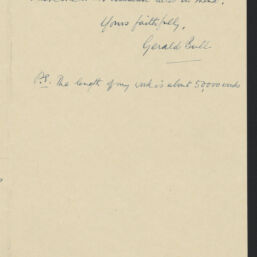 Yours faithfully,
Gerald Bull
P.S. The length of my work is about 50,000 words